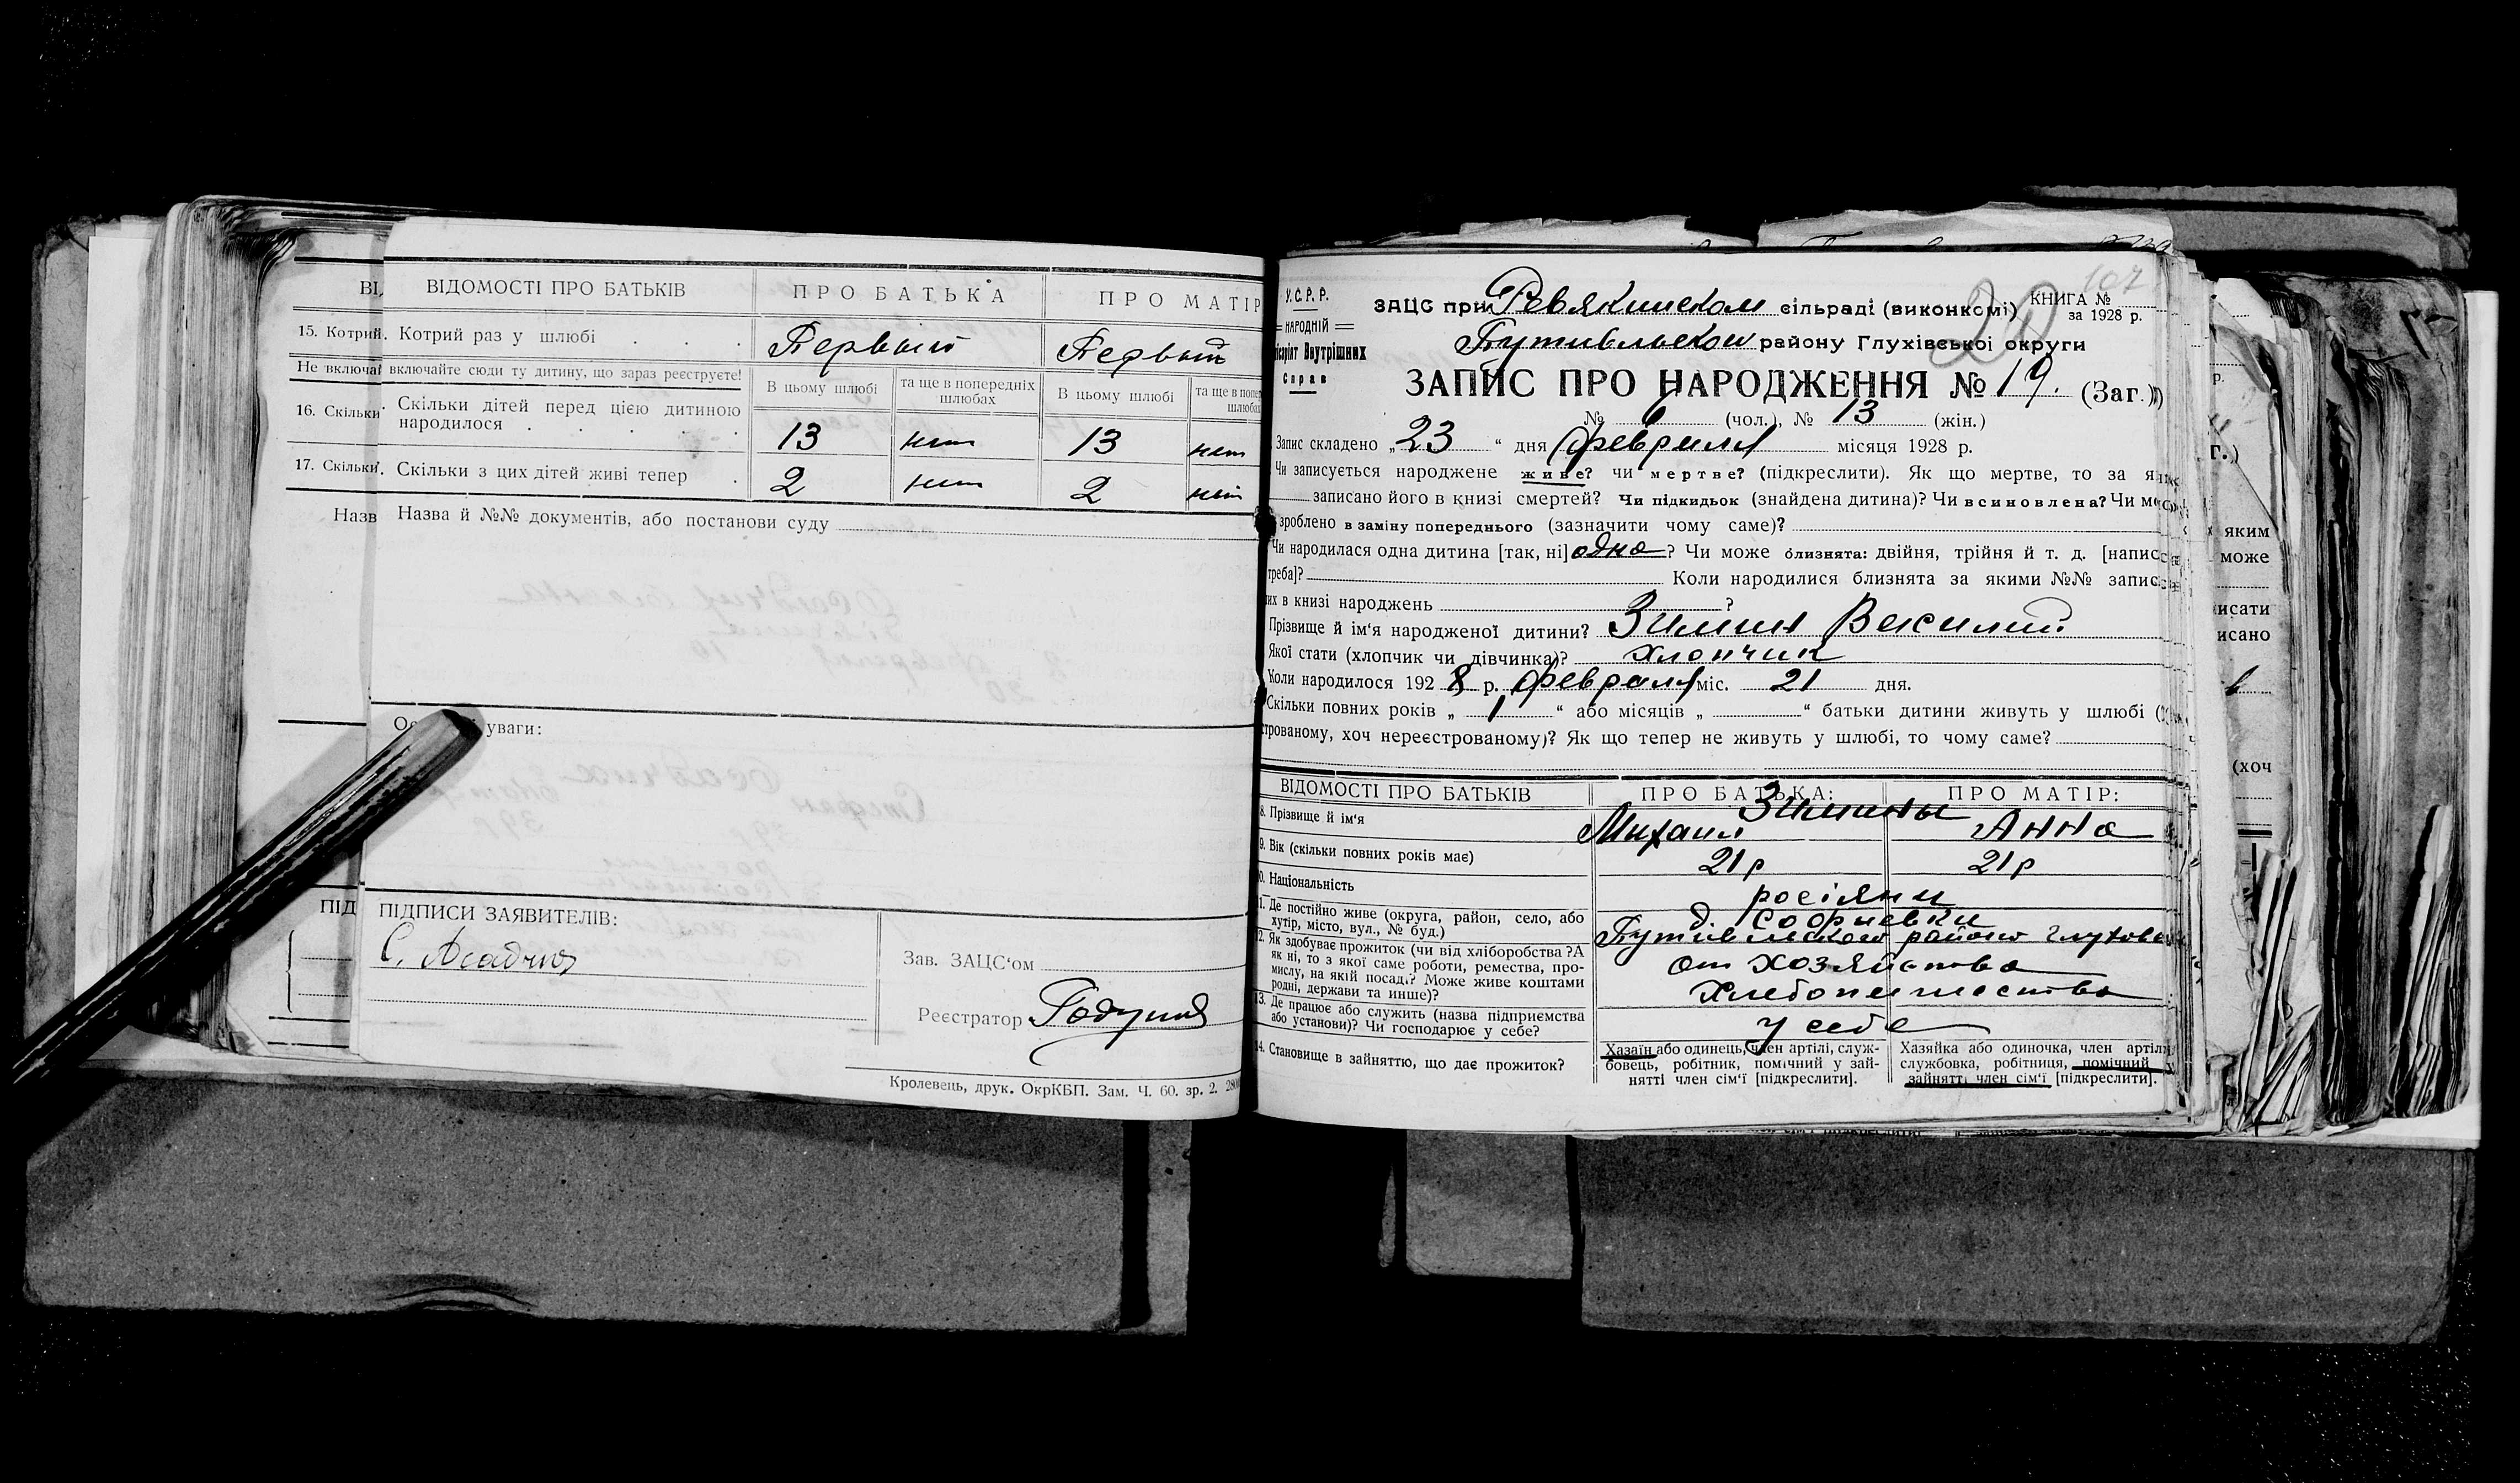 ВІДОМОСТІ ПРО БАТЬКІВ ПРО БАТЬКА ПРО МАТІР
15. Котрий Котрий раз у шлюбі Первый Первый
Не включа включайте сюди ту дитину, що зараз реєструєте!
В цьому шлюбі та ще в попередніх шлюбах В цьому шлюбі та ще в попер шлюбах
16. Скільки Скільки дітей перед цією дитиною
народилося 13 нет 13 нет
17. Скільки Скільки з цих дітей живі тепер 2 нет 2 нет
Назв Назва й №№ документів, або постанови суду
уваги:
ПІД ПІДПИСИ ЗАЯВИТЕЛІВ:
Зав. ЗАЦС'ом
Реєстратор
Кролевець, друк. ОкрКБП. Зам. Ч. 60. зр. 2.
У.С.Р.Р.
НАРОДНІЙ
Внутрішних
Справ
107
20
ЗАЦС при Ревякинском сільраді (виконкомі) КНИГА №
за 1928 р.
Путивльском району Глухівської округи
ЗАПИС ПРО НАРОДЖЕННЯ № 19. (Заг.)
№ 6 (чол.), № 13 (жін.)
Запис складено „ 23 “ дня февраля місяця 1928 р.
Чи записується народжене живе? чи мертве? (підкреслити). Як що мертве, то за я
записано його в книзі смертей? Чи підкидьок (знайдена дитина)? Чи всиновлена? Чи м
зроблено в заміну попереднього (зазначити чому саме)?
Чи народилася одна дитина [так, ні] одна? Чи може близнята: двійня, трійня й т. д. [напис
треба]? Коли народилися близнята за якими №№ запис
их в книзі народжень ?
Прізвище й ім'я народженої дитини? Зимин Василий
Якої стати (хлопчик чи дівчинка)? хлопчик
Коли народилося 192 8 р. февраля міс. 21 дня.
Скільки повних років „ 1 “ або місяців „ “ батьки дитини живуть у шлюбі (
трованому, хоч нереєстрованому)? Як що тепер не живуть у шлюбі, то чому саме?
ВІДОМОСТІ ПРО БАТЬКІВ ПРО БАТЬКА: ПРО МАТІР:
8. Прізвище й ім'я Зимины
Михаил Анна
9. Вік (скільки повних років має) 21 р 21 р
0. Національність росіяни
1. Де постійно живе (округа, район, село, або
хутір, місто, вул., № буд.) д. Софиевки
Путивльского района Глухов
2. Як здобуває прожиток (чи від хліборобства? А
як ні, то з якої саме роботи, ремества, про-
мислу, на якій посаді? Може живе коштами
родні, держави та инше)? от хозяйства
Хлебопашества
13. Де працює або служить (назва підприємства
або установи)? Чи господарює у себе? у себе
14. Становище в зайняттю, що дає прожиток?
Хазаїн або одинець, член артілі, служ-
бовець, робітник, помічний у зай-
нятті член сім'ї [підкреслити].
Хазяйка або одиночка, член артіл
службовка, робітниця, помічний
зайнятті член сім'ї [підкреслити].
яким
може
исати
исано
(хоч